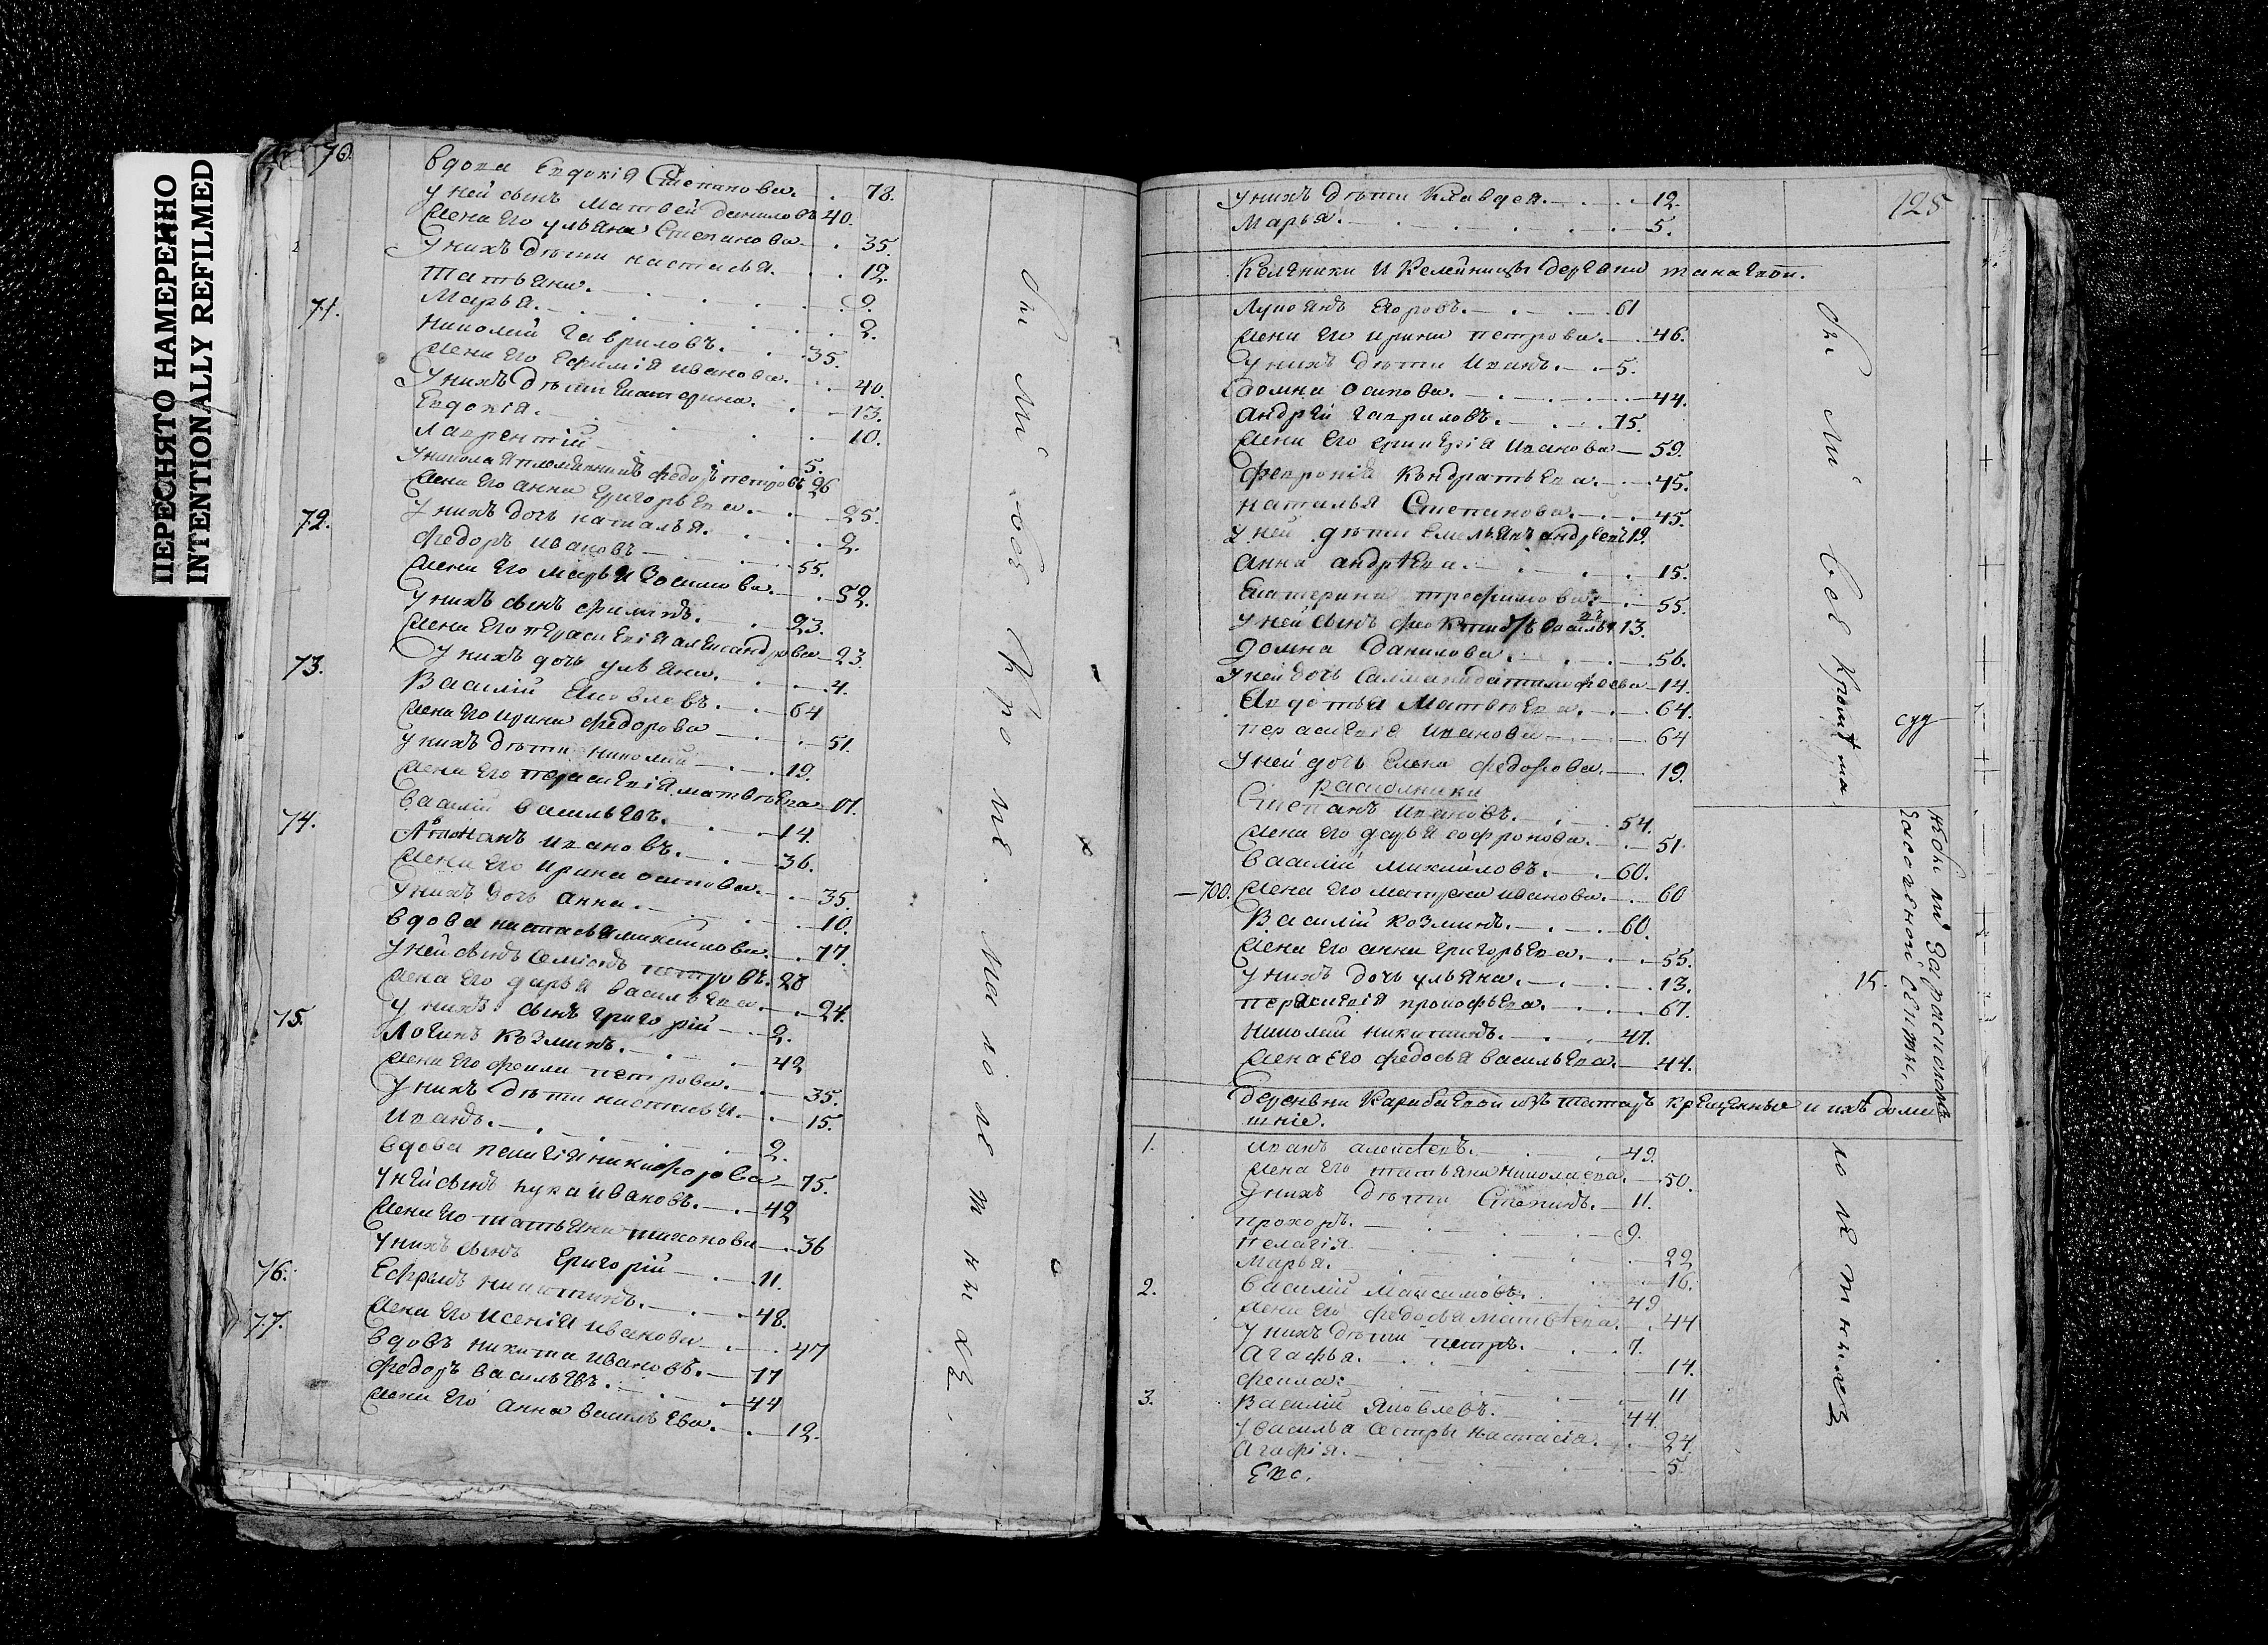 ПЕРЕСНЯТО НАМЕРЕННО
INTENTIONALLY REFILMED
70. вдова Евдокія Степанова. 78.
у ней сынъ Матвей даниловъ 40.
жена его ульяна Степанова 35.
у нихъ дѣти настасья. 12.
татьяна. 9.
Марья. 2.
71. николай гавриловъ. 35.
жена его Ефимія иванова. 40.
у нихъ дѣти Екатерина. 13.
Евдокія. 10.
лаврентій 5.
у николая племянникъ федоръ петровъ 26
жена его анна григорьева. 25.
у нихъ дочь наталья. 2.
72. федоръ ивановъ 55.
жена его марья Зосимова. 52.
у нихъ сынъ филипъ. 23.
жена его параскевія александрова 23.
у нихъ дочь ульяна. 4.
73. Василій Яковлевъ. 64
жена его ирина федорова 51.
у нихъ дѣти николай 19.
жена его параскевія матвѣева 17.
василій васильевъ. 14.
74. ивановъ. 36.
жена его ирина осипова. 35.
у нихъ дочь анна. 10.
вдова настасья михайлова. 77.
у ней сынъ Семіонъ петровъ. 28
жена его дарья васильева. 24.
у нихъ сынъ григорій 2.
75. Логинъ Козминъ. 42
жена его фекла петрова. 35.
у нихъ дѣти настасья. 15.
иванъ. 2.
вдова пелагія никифорова 75.
у ней сынъ лука ивановъ. 42
жена его татьяна тихонова 36
у нихъ сынъ григорій 11.
76. Ефремъ никитинъ. 48.
жена его ксенія иванова 47
77. вдовъ никита ивановъ. 77
федоръ васильевъ. 44
жена его анна васильева. 12.
125
у нихъ дѣти Клавдея. 12.
Марья. 5.
Келейники и Келейницы деревни
Лукоянъ Егоровъ. 61
жена его ирина петрова. 46.
у нихъ дѣти иванъ. 5.
домна осипова. 44.
андрей гавриловъ. 75.
жена его иванова 59.
февронія Кондратьева. 45.
наталья Степанова. 45.
у ней дѣти Емельянъ андреевъ 19.
анна андрѣева. 15.
Екатерина трофимова. 55.
у ней сынъ 13.
домна данилова. 56.
у ней дочь 14.
Авдотья Матвѣева. 64.
параскевія иванова 64
у ней дочь Елена федорова. 19.
раскольники
Степанъ ивановъ. 54.
жена его дарья софронова. 51.
василій михайловъ. 60.
700. жена его матрена иванова. 60
Василій козминъ. 60.
жена его анна григорьева. 55.
у нихъ дочь ульяна. 13.
параскевія прокофьева. 67.
николай никитинъ. 47.
жена его федосья васильева. 44.
суд
15.
деревни изъ татаръ крещенные и ихъ дома
шніе.
1. иванъ алексѣевъ. 49.
жена его татьяна николаева. 50.
у нихъ дѣти Степанъ. 11.
прохоръ. 9.
пелагія. 22
Марья. 16.
2. василій Максимовъ. 49
жена его федосья матвѣева. 44
у нихъ дѣти петръ. 7.
Агафья. 14.
фекла. 11
3. Василій Яковлевъ. 44.
у василья сестры настасія. 24.
Агафія. 5.